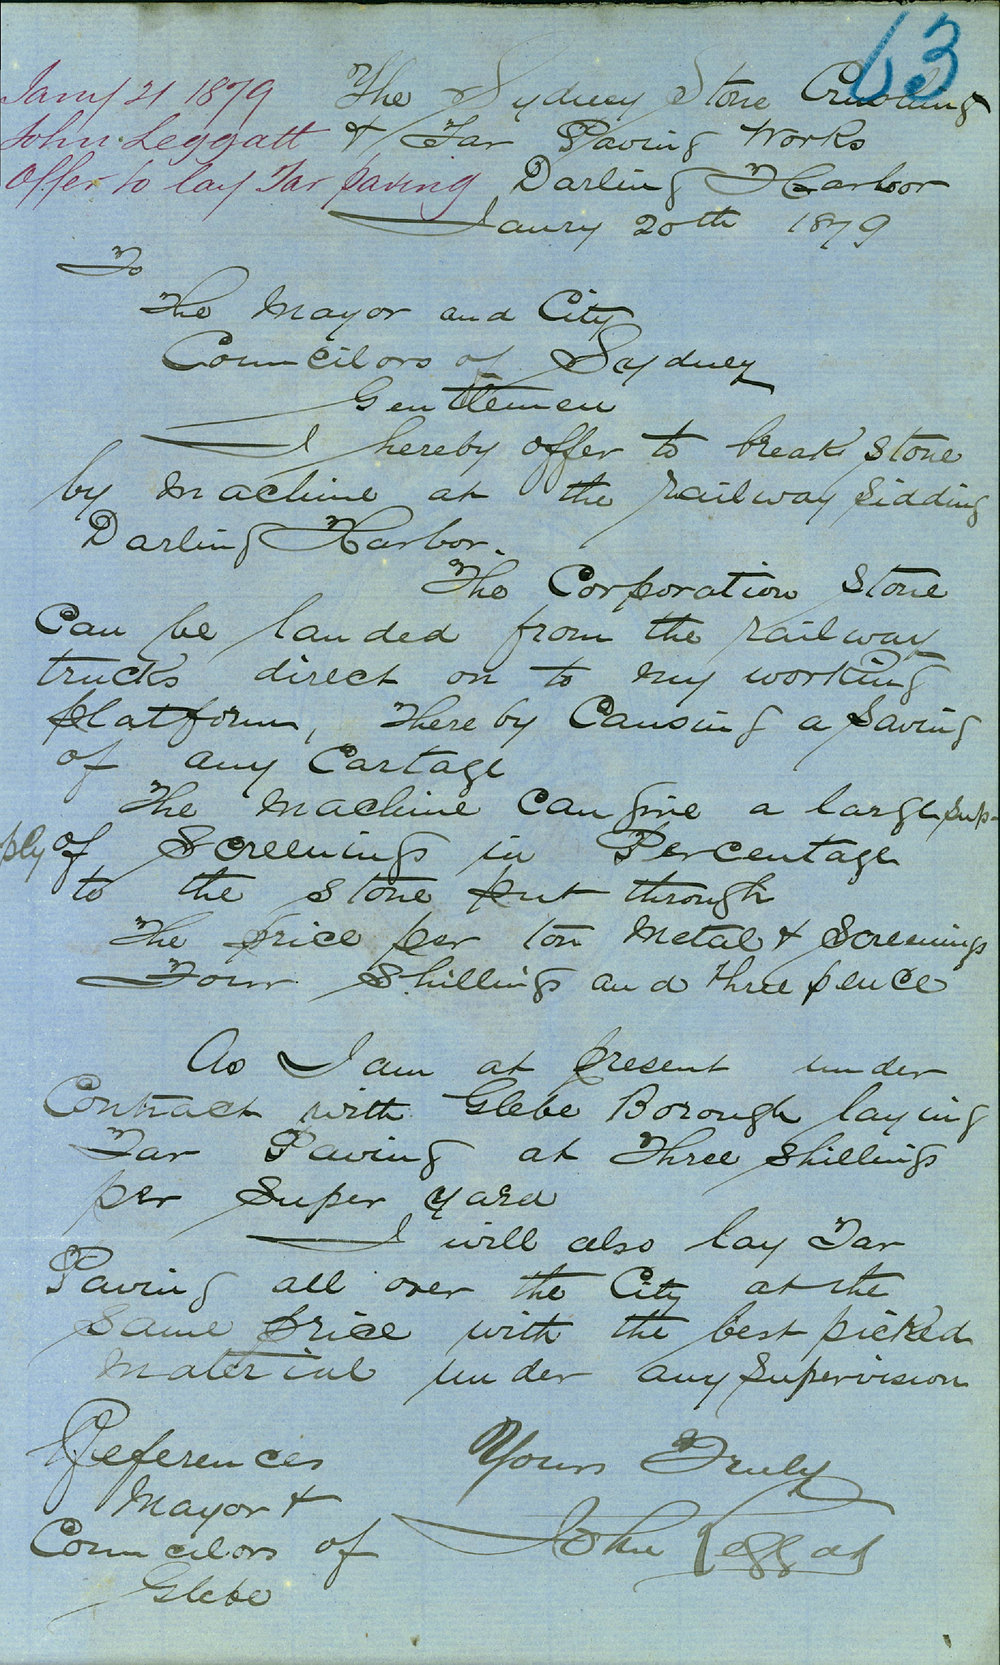 63
Jany 21 1879
John Leggatt
Offer to lay Tar paving
The Sydney Stone Crushing
& Tar Paving Works
Darling Harbor
Jaury 20th 1879
To
The Mayor and City
Councilors of Sydney
Gentlemen
I hereby offer to break stone
by Machine at the railway sidding
Darling Harbor.
The Corporation Stone
Can be landed from the railway
trucks direct on to my working
platform, thereby Causing a saving
of any Cartage
The Machine can give a large sup-
ply of Screenings in Percentage
to the stone put through
The price per ton Metal & Screenings
Four Shillings and three pence
As I am at present under
Contract with Glebe Borough laying
Tar Paving at Three shillings
per super yard
I will also lay Tar
Paving all over the City at the
same price with the best picked
material under any supervision
References
Mayor &
Councilors of
Glebe
Yours Truly
John Leggat